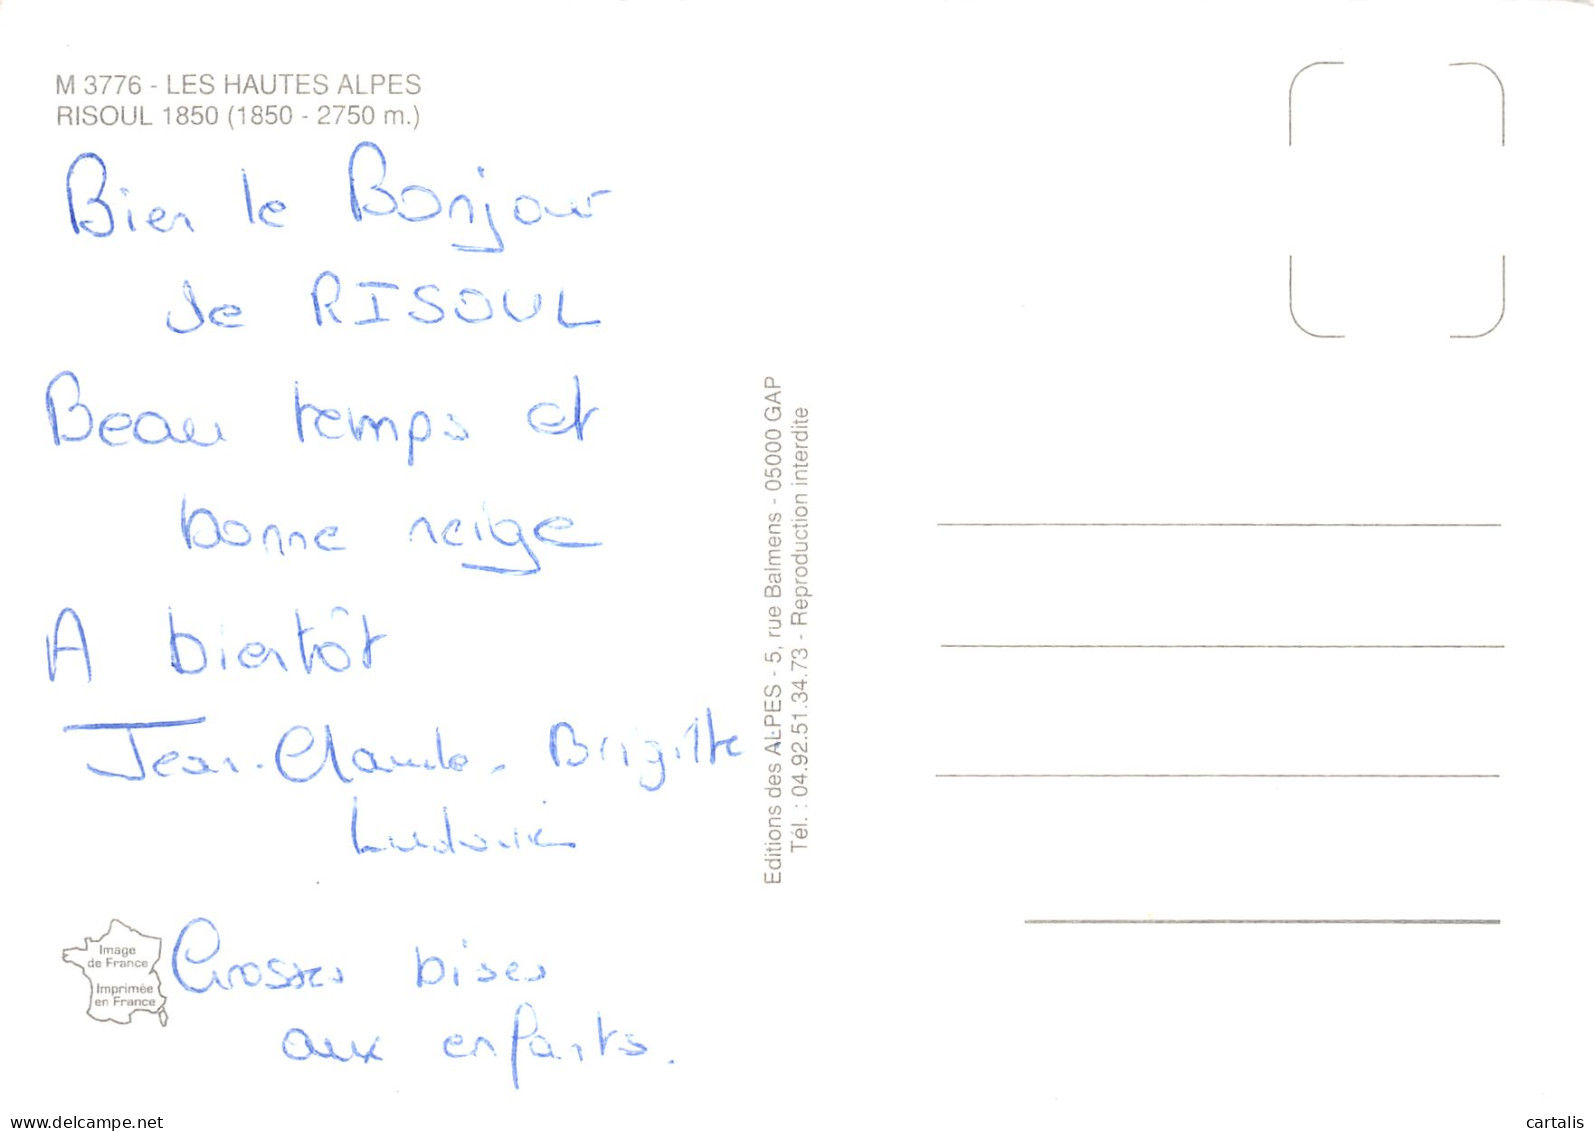 M 3776 - LES HAUTES ALPES
RISOUL 1850 (1850 - 2750 m.)
Bien le Bonjour
de RISOUL
Beau temps et
bonne neige
A bientôt
Jean-Claude - Brigitte
Ludovic
Grosses bises
aux enfants.
Image
de France
Imprimée
en France
Editions des ALPES - 5, rue Balmens - 05000 GAP
Tél. : 04.92.51.34.73 - Reproduction interdite
delcampe.net
cartalis